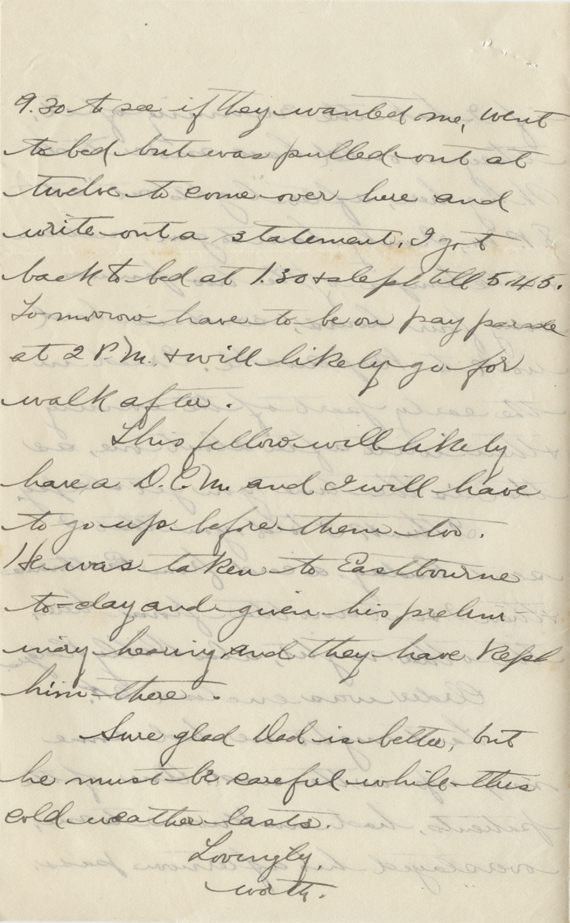 9.30 to see if they wanted me, went
to bed but was pulled out at
twelve to come over here and
write out a statement. I got
back to bed at 1.30 & slept till 5.45.
Tomorrow have to be on pay parade
at 2 P.M. & will likely go for
walk after.
This fellow will likely
have a D.C.M. and I will have
to go up before them too.
He was taken to Eastbourne
to-day and given his prelim
inary hearing and they have kept
him there.
Sure glad Dad is better, but
he must be careful while this
cold weather lasts.
Lovingly.
Worth.